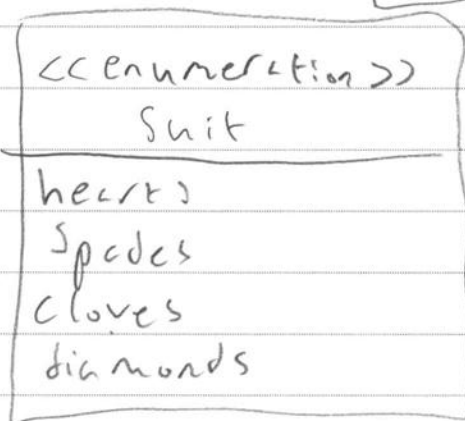 <<enumeration>>
Suit
hearts
Spades
cloves
diamonds